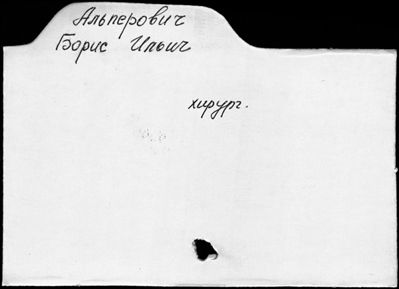 Альперович
Борис Ильич
хирург.